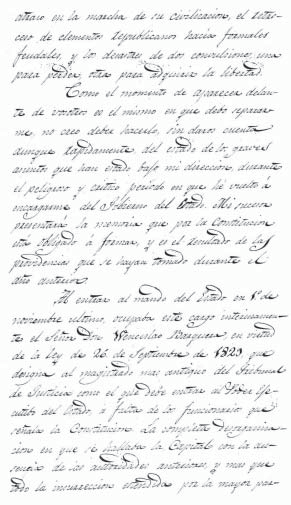 atraso en la marcha de su civilizacion, el retro-
ceso de elementos republicanos hacia formales
feudales, y los desastres de dos convulsiones, una
para perder, otra para adquirir la libertad.
Como el momento de aparecer delan-
te de vosotros es el mismo en que debo separar
me, no creo deber hacerlo, sin daros cuenta
aunque rapidamente del estado de los graves
asuntos que han estado bajo mi direccion, durante
el peligroso y critico periodo en que hé vuelto á
encargarme del Gobierno del Estado. Mi sucesor
presentará la memoria que por la Constitucion
está obligado á formar, y es el resultado de las
providencias que se hayan tomado durante el
año anterior.
Al entrar al mando del Estado en 1º de
noviembre ultimo, ocupaba este cargo interinamen-
te el Señor Don Wenceslao Barquera, en virtud
de la ley de 26 de Septiembre de 1829 que
designa al magistrado mas antiguo del Tribunal
de Justicia como el que debe entrar al Poder Eje-
cutibo del Estado, á falta de los funcionarios que
señala la Constitucion. La completa desorganiza-
cion en que se hallaba la Capital con la au-
sencia de las autoridades anteriores, y mas que
todo la insurreccion estendida por la mayor par-